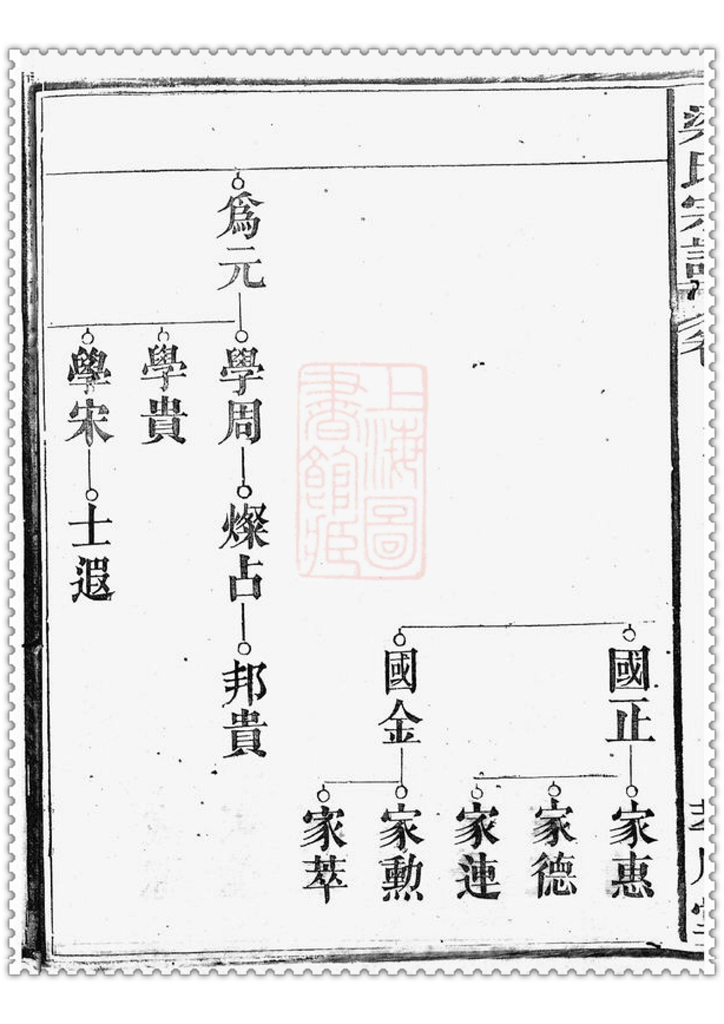 國正
家惠
家德
家連
國金
家勲
家萃
爲元
學周
燦占
邦貴
學貴
學宋
士遐
上海圖
書館藏